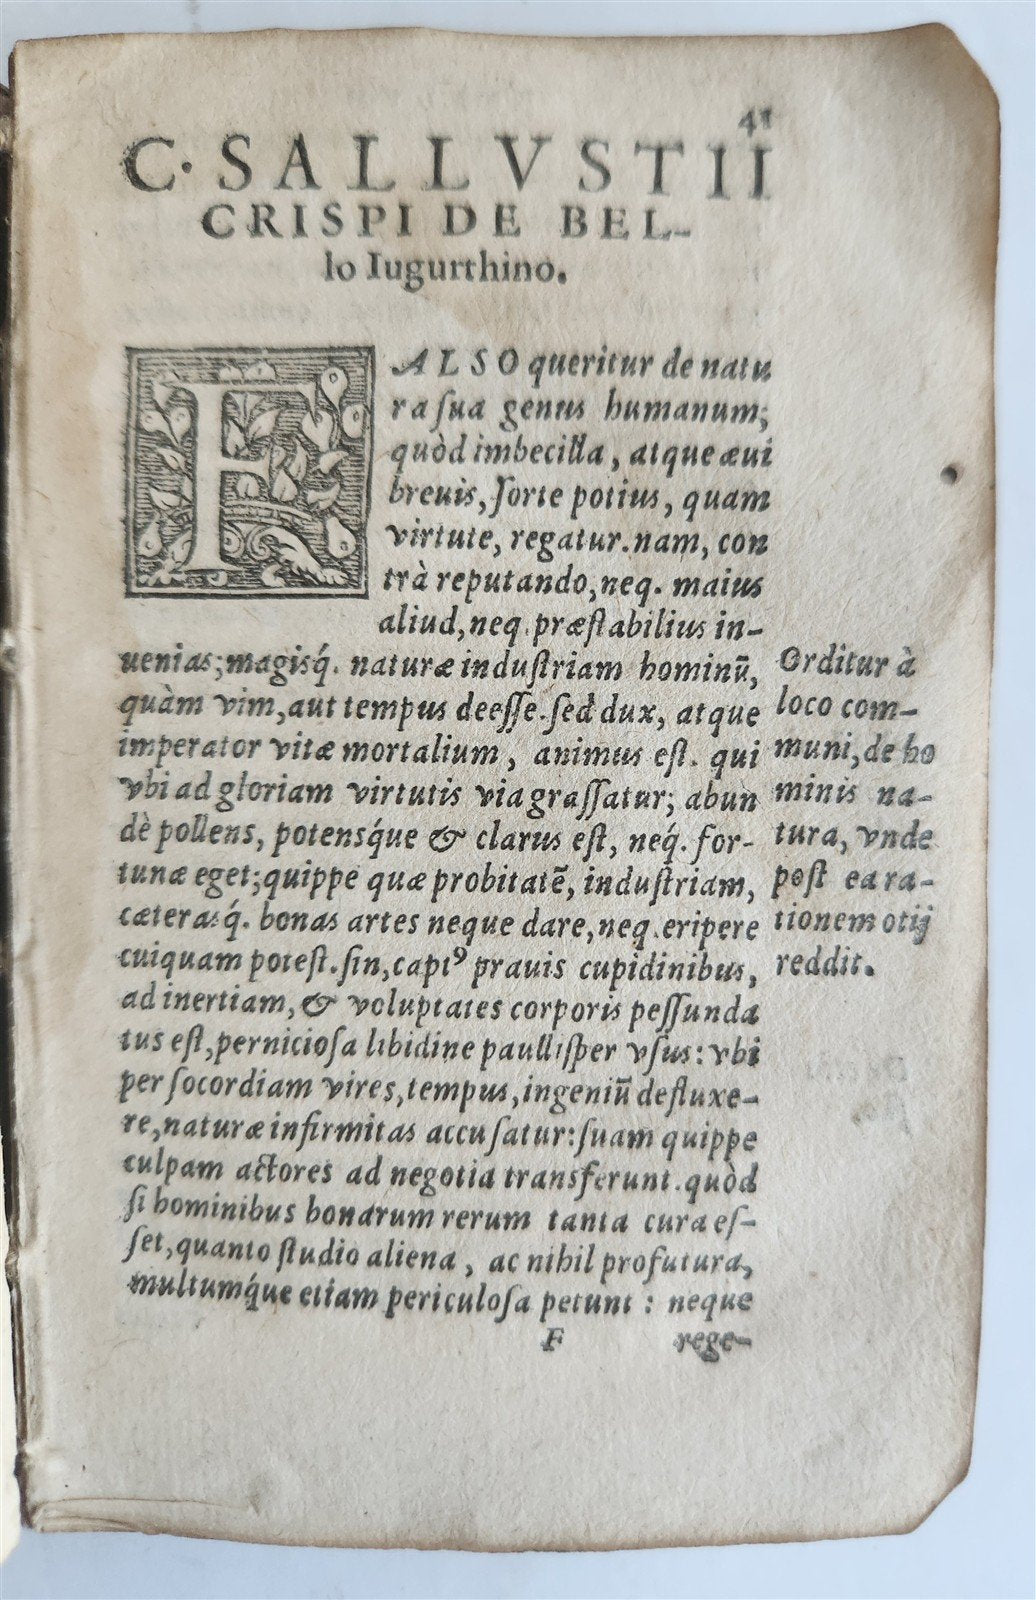 41
C. SALLVSTII
CRISPI DE BEL-
lo Iugurthino.
FALSO queritur de natu
ra ſua genus humanum;
quòd imbecilla, atque æui
breuis, ſorte potius, quam
virtute, regatur. nam, con
trà reputando, neq. maius
aliud, neq. præſtabilius in-
uenias; magisq́. naturæ induſtriam hominū,
quàm vim, aut tempus deeſſe. ſed dux, atque
imperator vitæ mortalium, animus eſt. qui
vbi ad gloriam virtutis via graſſatur; abun
dè pollens, potensq́ue & clarus eſt, neq́. for-
tunæ eget; quippe quæ probitatē, induſtriam,
cæterasq́. bonas artes neque dare, neq. eripere
cuiquam poteſt. ſin, capt⁹ prauis cupidinibus,
ad inertiam, & voluptates corporis peſſunda
tus eſt, pernicioſa libidine paulliſper vſus: vbi
per ſocordiam vires, tempus, ingeniū defluxe-
re, naturæ infirmitas accuſatur: ſuam quippe
culpam actores ad negotia transferunt. quòd
ſi hominibus bonarum rerum tanta cura eſ-
ſet, quanto ſtudio aliena, ac nihil profutura,
multumq́ue etiam periculoſa petunt: neque
F rege-
Orditur à
loco com-
muni, de ho
minis na-
tura, vnde
poſt ea ra-
tionem otij
reddit.